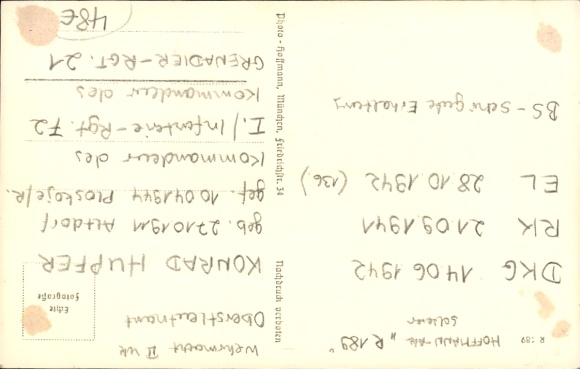 R 189
HOFFMANN-AK „R 189"
seltener
DKG 14.06.1942
RK 21.09.1941
EL 28.10.1942 (136.)
BS-Sehr gute Erhaltung
Photo-Hoffmann, München, Friedrichstr. 34
Nachdruck verboten
Echte
Fotografie
Wehrmacht II WK
Oberstleutnant
KONRAD HUPFER
geb. 27.10.1911 Altdorf
gef. 10.04.1944 Ploskoje/R.
Kommandeur des
I./Infanterie-Rgt. 72
Kommandeur des
GRENADIER-RGT. 21
48€